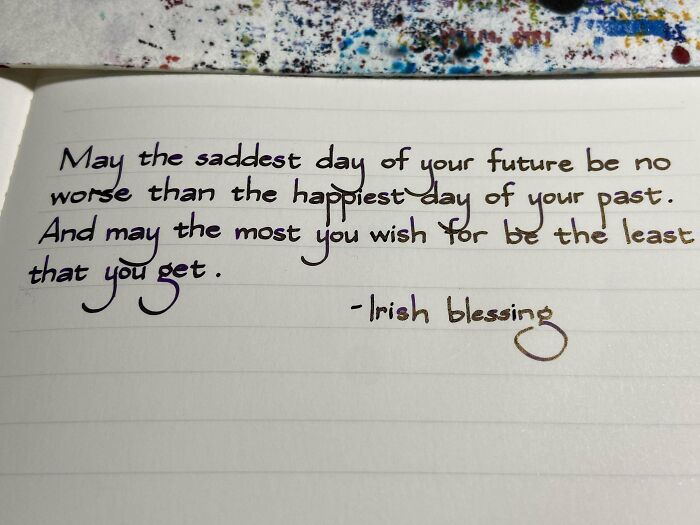 May the saddest day of your future be no
worse than the happiest day of your past.
And may the most you wish for be the least
that you get.
-Irish blessing